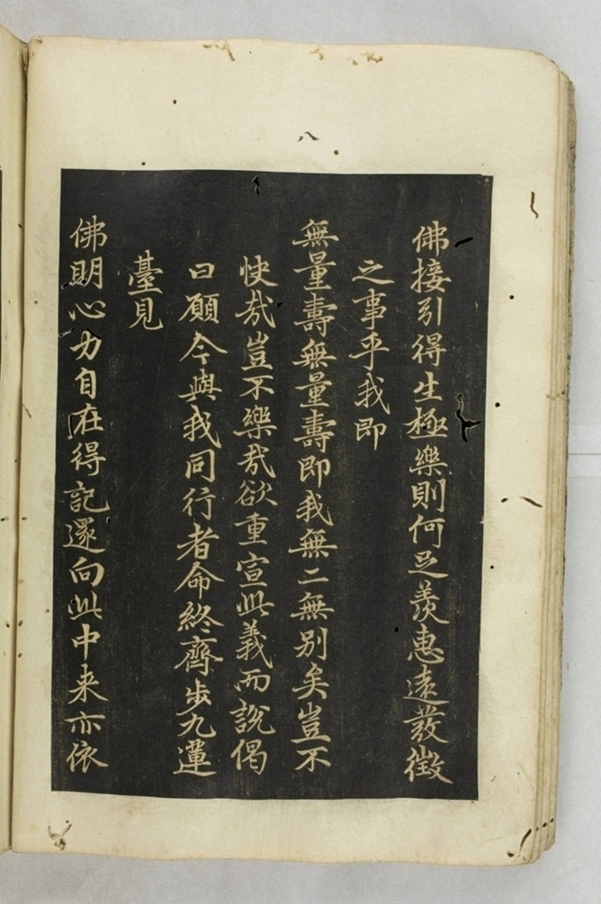 八
佛接引得生極樂則何足羨惠遠發徵
之事乎我即
無量壽無量壽即我無二無別矣豈不
快哉豈不樂哉欲重宣此義而說偈
曰願今與我同行者命終齊步九蓮
臺見
佛明心力自在得記還向此中来亦依